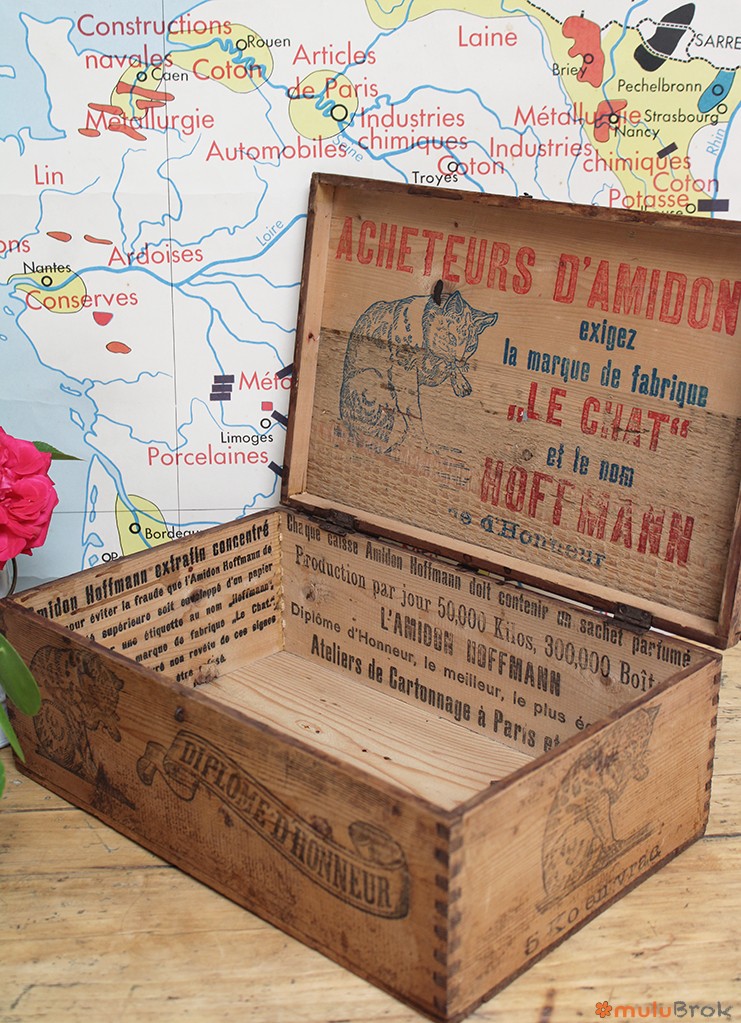 Constructions
navales
Rouen
Caen
Coton
Articles
de Paris
Laine
Briey
SARRE
Pechelbronn
Métallurgie
Industries
chimiques
Métallurgie
Strasbourg
Nancy
Automobiles
Seine
Troyes
Coton
Industries
chimiques
Rhin
Coton
Potasse
Lin
Loire
Ardoises
Nantes
Conserves
Limoges
Porcelaines
ACHETEURS D'AMIDON
exigez
la marque de fabrique
„LE CHAT“
et le nom
HOFFMANN
d'Honneur
Amidon Hoffmann extrafin concentré
pour éviter la fraude que l'Amidon Hoffmann de
supérieure soit enveloppé d'un papier
une étiquette au nom „Hoffmann“
marque de fabrique „Le Chat“
non revêtu de ces signes
Chaque caisse Amidon Hoffmann doit contenir un sachet parfumé
Production par jour 50,000 Kilos, 300,000
L'AMIDON HOFFMANN
Diplôme d'Honneur, le meilleur, le plus
Ateliers de Cartonnage à Paris et
DIPLOME D'HONNEUR
5 Ko en vrac
muluBrok